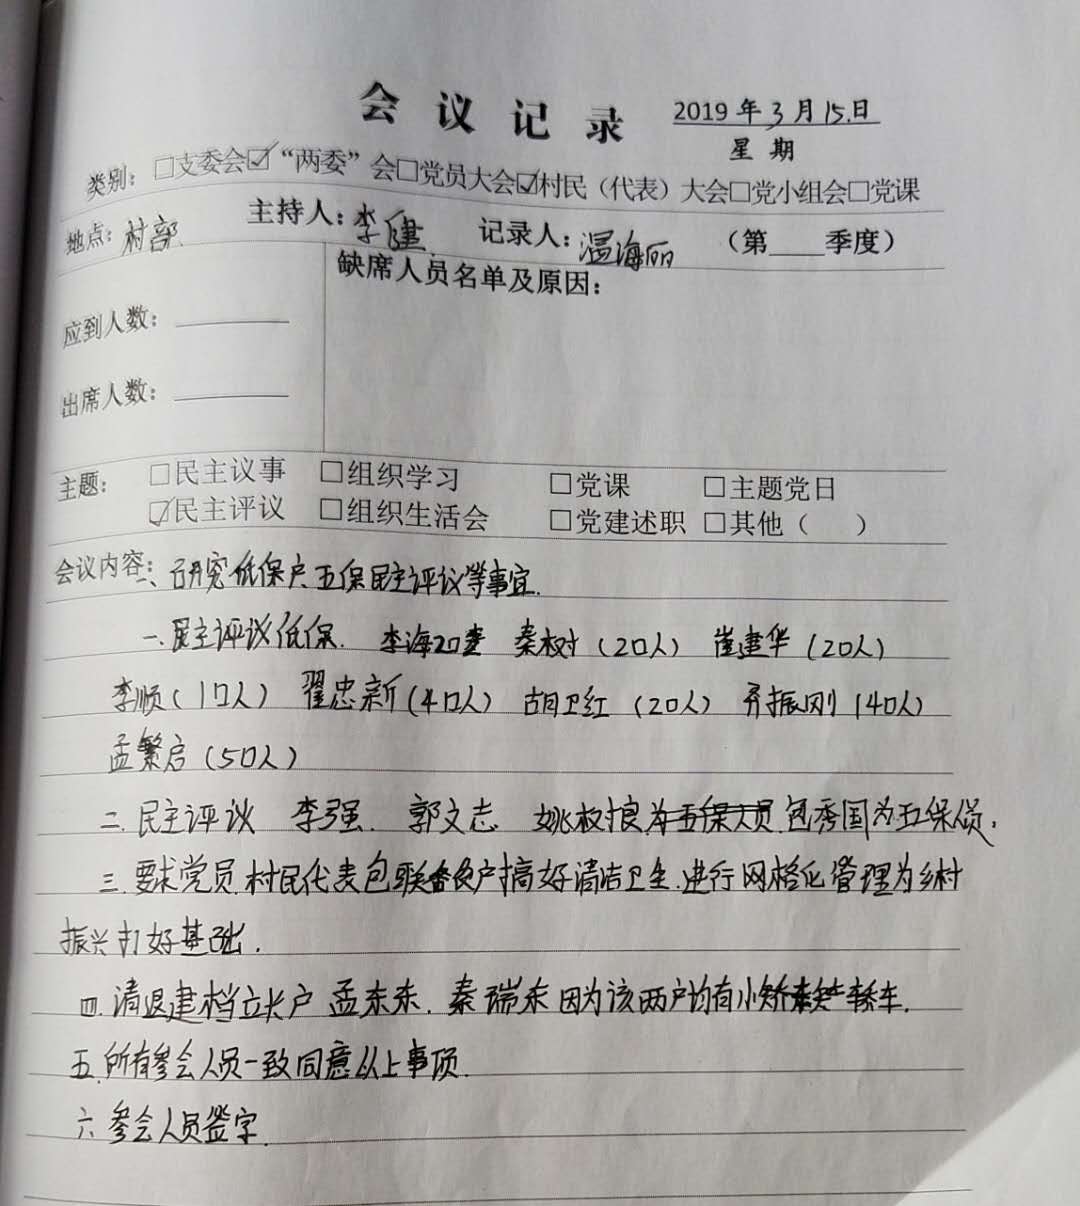 会议记录 2019年3月15日
星期
类别：□支委会☑“两委”会□党员大会☑村民（代表）大会□党小组会□党课
地点：村部 主持人：李健 记录人：温海丽 （第____季度）
缺席人员名单及原因：
应到人数：
出席人数：
主题： □民主议事 □组织学习 □党课 □主题党日
☑民主评议 □组织生活会 □党建述职 □其他（ ）
会议内容：一、研究低保户五保民主评议等事宜.
一.民主评议低保. 李海 秦树（2口人） 崔建华（2口人）
李顺（1口人） 翟忠新（4口人） 胡卫红（2口人） 振刚（4口人）
孟繁启（5口人）
二.民主评议 李强. 郭文志 姚树良 包秀国为五保人员.
三.要求党员.村民代表包联户搞好清洁卫生.进行网格化管理为乡村
振兴打好基础.
四.清退建档立卡户孟东东.秦瑞东因为该两户均有小轿车.
五.所有参会人员一致同意以上事项.
六.参会人员签字.